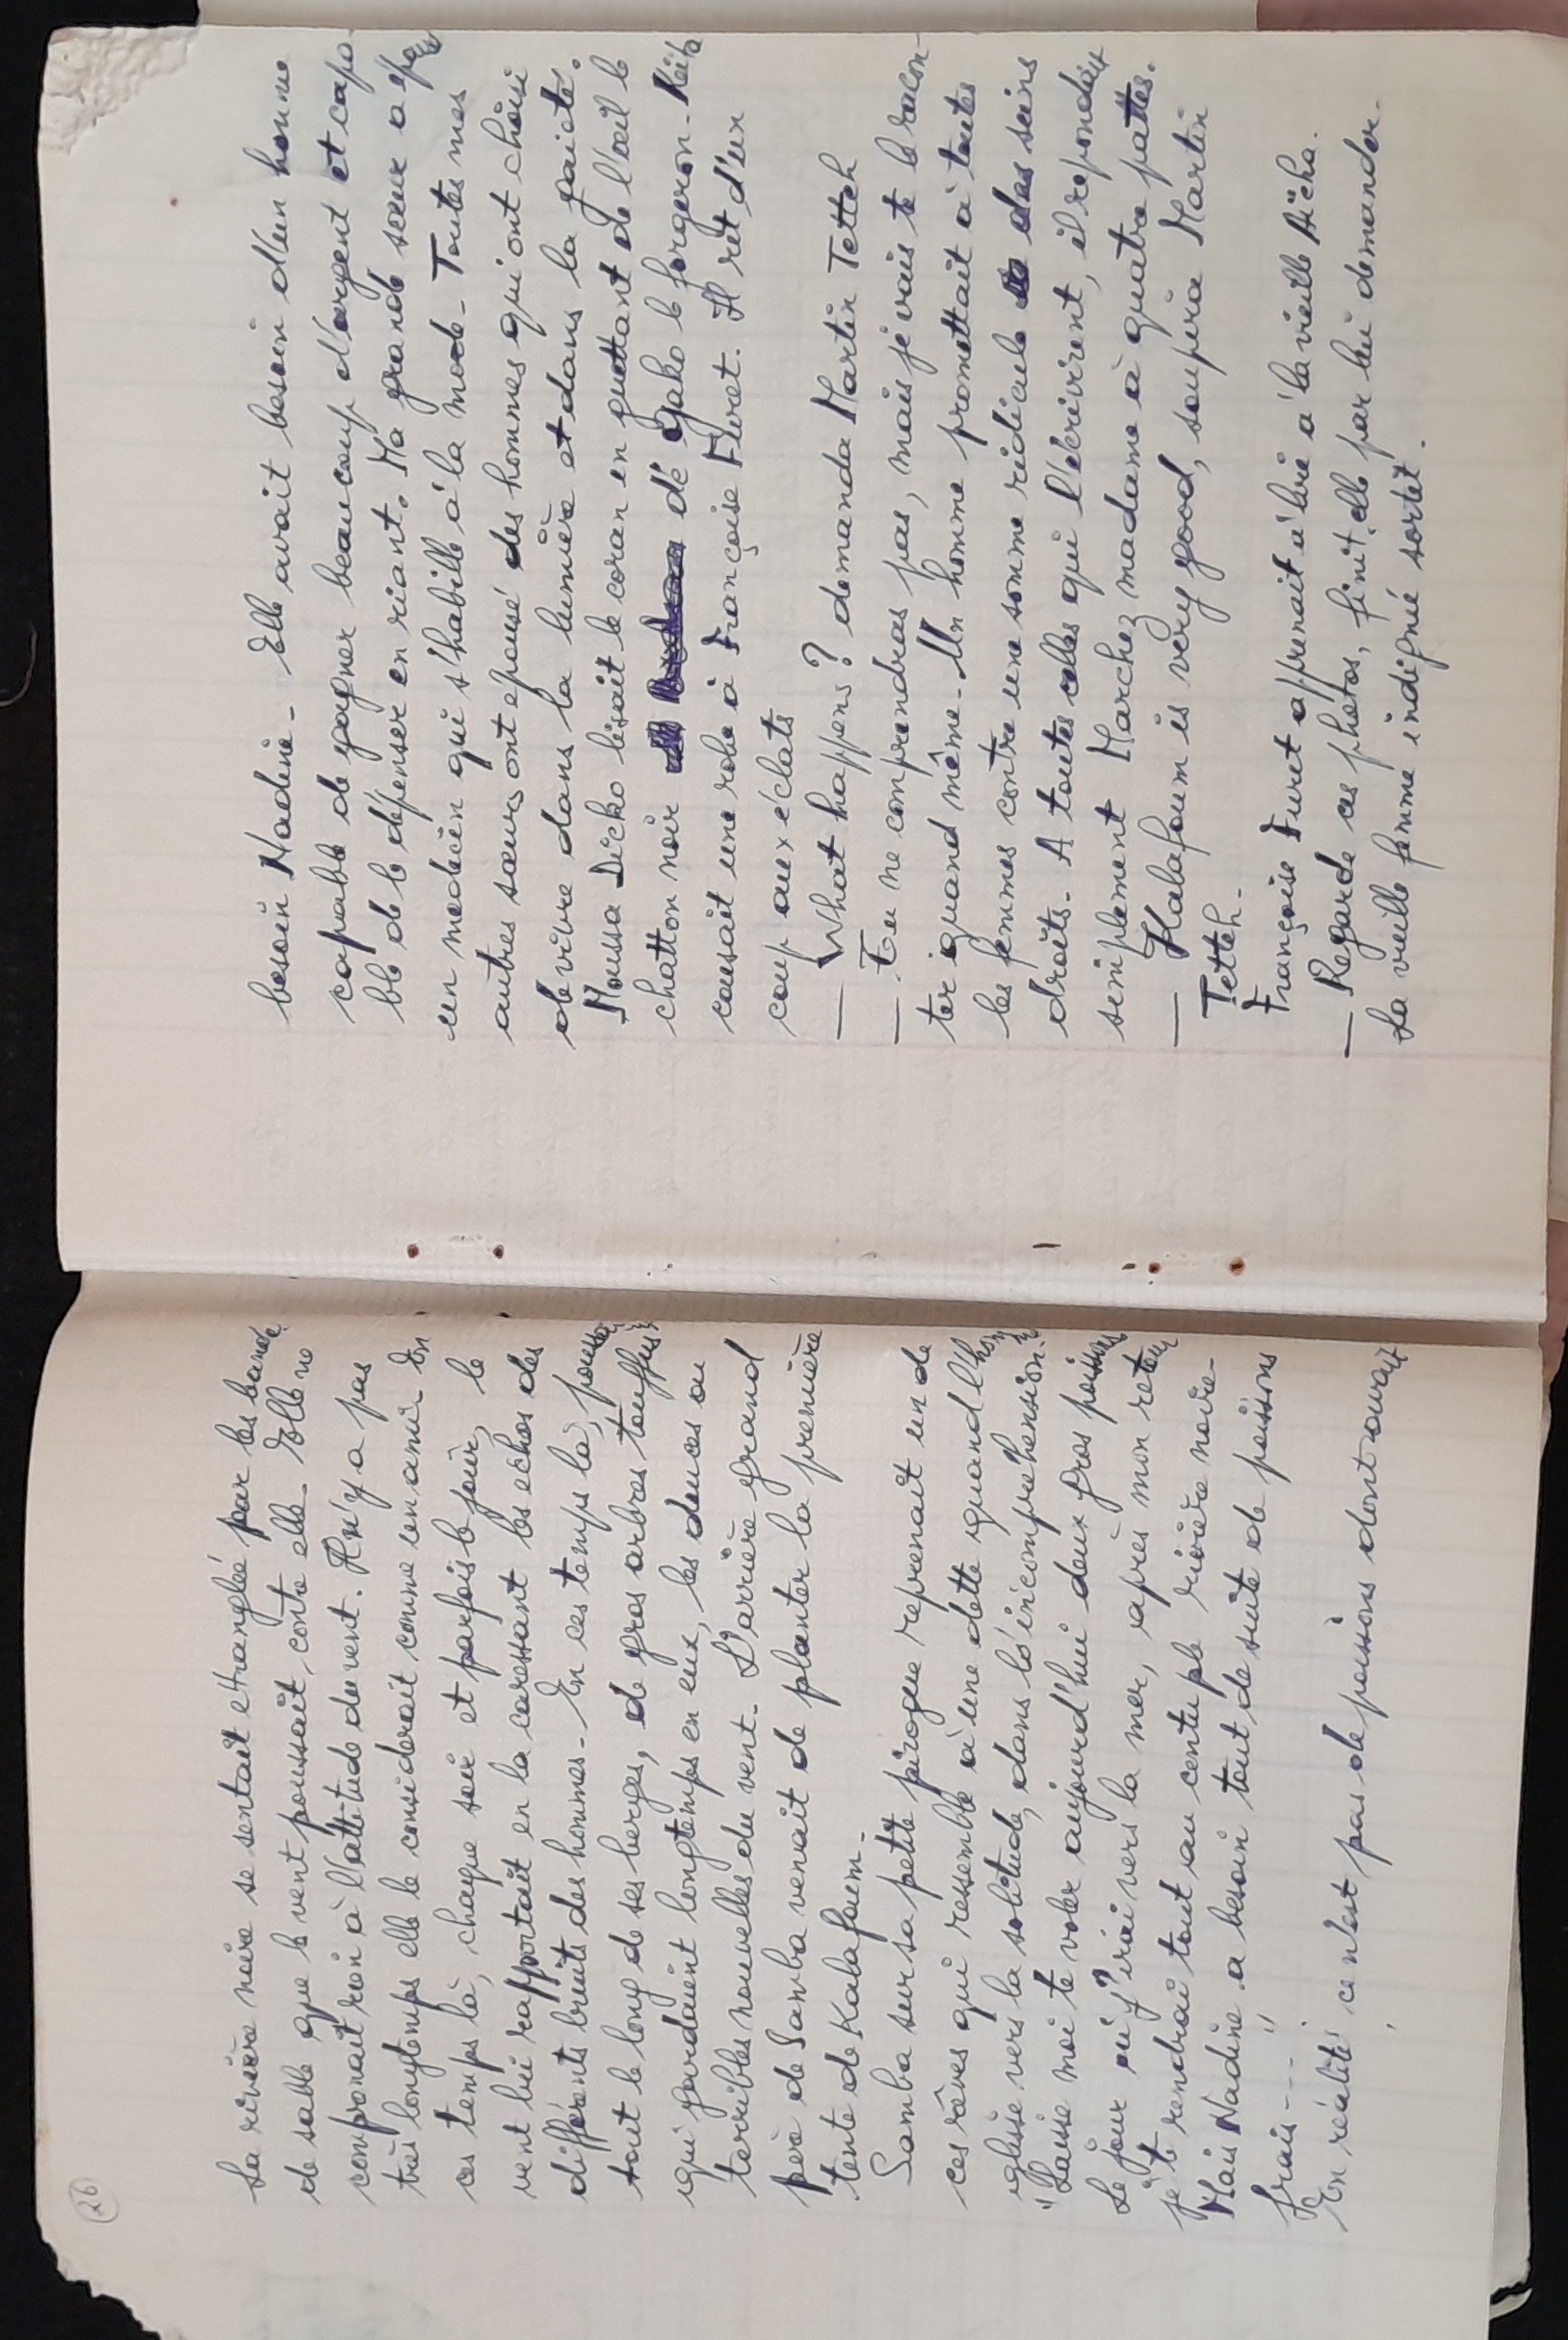 26
La rivière noire se sentait etranglée par les bancs
de sable que le vent poussait, contre elle. Elle ne
comprenait rien à l'attitude du vent. Il n'y a pas
très longtemps elle le considerait comme un ami. En
ces temps là, chaque soir et parfois le jour, le
vent lui rapportait en la caressant les echos des
différents bruits des hommes. En ces temps là, poussaient
tout le long de ses berges, de gros arbres touffus
qui gardaient longtemps en eux, les douces ou
terribles nouvelles du vent. L'arrière grand
père de Samba venait de planter la première
tente de Kalafoum.
Samba sur sa petite pirogue reprenait un de
ces rêves qui ressemble à une dette quand l'homme
glisse vers la solitude, dans l'incomprehension.
"Laisse moi te voler aujourd'hui deux gros poissons
Le jour où j'irai vers la mer, après mon retour
je te rendrai tout au centuple rivière noire.
Mais Nadine a besoin tout de suite de poissons
frais --- "
En réalité, ce n'est pas de poissons dont avait
besoin Nadine. Elle avait besoin d'un homme
capable de gagner beaucoup d'argent et capa-
ble de le dépenser en riant. Ma grande sœur a épousé
un medecin qui s'habille à la mode. Toutes mes
autres sœurs ont epousé des hommes qui ont choisi
de vivre dans la lumière et dans la gaieté.
Moussa Dicko lisait le coran en guettant de l'œil le
chatton noir de Gako le forgeron. Keïta
cousait une robe à Françoise Furet. Il rit d'un
coup aux éclats
— What happens? demanda Martin Tetteh
— Tu ne comprendras pas, mais je vais te le racon-
ter quand même. Un homme promettait à toutes
les femmes contre une somme ridicule des seins
droits. A toutes celles qui l'écrivirent, il repondit
simplement Marchez madame à quatre pattes.
— Kalafoum is very good, soupira Martin
Tetteh.
Françoise Furet apprenait à lire à la vieille Aïcha.
— Regarde ces photos, finit elle par lui demander.
La vieille femme indignée sortit.